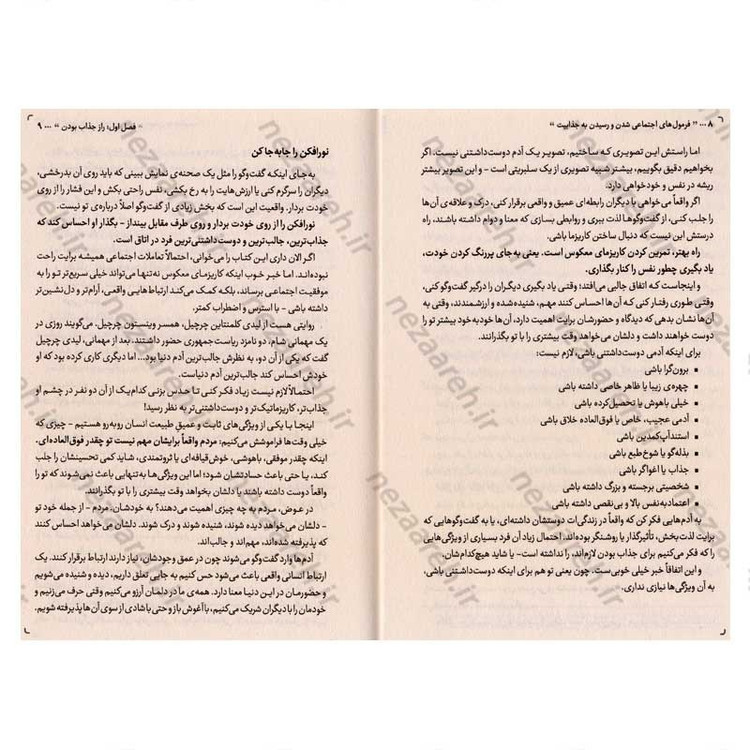 ۸ ... " فرمول‌های اجتماعی شدن و رسیدن به جذابیت "
اما راستش این تصویری که ساختیم، تصویر یک آدم دوست‌داشتنی نیست. اگر
بخواهیم دقیق بگوییم، بیشتر شبیه تصویری از یک سلبریتی است - و این تصویر بیشتر
ریشه در نفس و خودخواهی دارد.
اگر واقعاً می‌خواهی با دیگران رابطه‌ای عمیق و واقعی برقرار کنی، درک و علاقه‌ی آن‌ها
را جلب کنی، از گفت‌وگوها لذت ببری و روابطی بسازی که معنا و دوام داشته باشند، راه
درستش این نیست که دنبال ساختن کاریزما باشی.
راه بهتر، تمرین کردن کاریزمای معکوس است. یعنی به‌جای پررنگ کردن خودت،
یاد بگیری چطور نفس را کنار بگذاری.
و اینجاست که اتفاق جالبی می‌افتد: وقتی یاد بگیری دیگران را درگیر گفت‌وگو کنی،
وقتی طوری رفتار کنی که آن‌ها احساس کنند مهم، شنیده‌شده و ارزشمندند، وقتی به
آن‌ها نشان بدهی که دیدگاه و حضورشان برایت اهمیت دارد، آن‌ها خودبه‌خود بیشتر تو را
دوست خواهند داشت و دلشان می‌خواهد وقت بیشتری را با تو بگذرانند.
برای اینکه آدمی دوست‌داشتنی باشی، لازم نیست:
▪ برون‌گرا باشی
▪ چهره‌ی زیبا یا ظاهر خاصی داشته باشی
▪ خیلی باهوش یا تحصیل‌کرده باشی
▪ آدمی عجیب، خاص یا فوق‌العاده خلاق باشی
▪ استندآپ‌کمدین باشی
▪ بذله‌گو یا شوخ‌طبع باشی
▪ جذاب یا اغواگر باشی
▪ شخصیتی برجسته و بزرگ داشته باشی
▪ اعتمادبه‌نفس بالا و بی‌نقصی داشته باشی
به آدم‌هایی فکر کن که واقعاً در زندگی‌ات دوستشان داشته‌ای، یا به گفت‌وگوهایی که
برایت لذت‌بخش، تأثیرگذار یا روشنگر بوده‌اند. احتمال زیاد آن فرد بسیاری از ویژگی‌هایی
را که فکر می‌کنیم برای جذاب بودن لازم‌اند، را نداشته است - یا شاید هیچ‌کدامشان.
و این اتفاقاً خبر خیلی خوبی‌ست. چون یعنی تو هم برای اینکه دوست‌داشتنی باشی،
به آن ویژگی‌ها نیازی نداری.
فصل اول: راز جذاب بودن " ... ۹
نورافکن را جابه‌جا کن
به‌جای اینکه گفت‌وگو را مثل یک صحنه‌ی نمایش ببینی که باید روی آن بدرخشی،
دیگران را سرگرم کنی یا ارزش‌هایت را به رخ بکشی، نفس راحتی بکش و این فشار را از روی
خودت بردار. واقعیت این است که بخش زیادی از گفت‌وگو اصلاً درباره‌ی تو نیست.
نورافکن را از روی خودت بردار و روی طرف مقابل بینداز - بگذار او احساس کند که
جذاب‌ترین، جالب‌ترین و دوست‌داشتنی‌ترین فرد در اتاق است.
اگر الان داری این کتاب را می‌خوانی، احتمالاً تعاملات اجتماعی همیشه برایت راحت
نبوده‌اند. اما خبر خوب اینکه کاریزمای معکوس نه‌تنها می‌تواند خیلی سریع‌تر تو را به
موفقیت اجتماعی برساند، بلکه کمک می‌کند ارتباط‌هایی واقعی، آرام‌تر و دل‌نشین‌تر
داشته باشی - با استرس و اضطراب کمتر.
روایتی هست از لیدی کلمنتاین چرچیل، همسر وینستون چرچیل. می‌گویند روزی در
یک مهمانی شام، دو نامزد ریاست جمهوری حضور داشتند. بعد از مهمانی، لیدی چرچیل
گفت که یکی از آن دو، به نظرش جالب‌ترین آدم دنیا بود... اما دیگری کاری کرده بود که او
خودش احساس کند جالب‌ترین آدم دنیاست.
احتمالاً لازم نیست زیاد فکر کنی تا حدس بزنی کدام‌یک از آن دو نفر در چشم او
جذاب‌تر، کاریزماتیک‌تر و دوست‌داشتنی‌تر به نظر رسید!
اینجا با یکی از ویژگی‌های ثابت و عمیق طبیعت انسان روبه‌رو هستیم - چیزی که
خیلی وقت‌ها فراموشش می‌کنیم: مردم واقعاً برایشان مهم نیست تو چقدر فوق‌العاده‌ای.
اینکه چقدر موفقی، باهوشی، خوش‌قیافه‌ای یا ثروتمندی، شاید کمی تحسینشان را جلب
کند، یا حتی باعث حسادتشان شود؛ اما این ویژگی‌ها به‌تنهایی باعث نمی‌شوند که تو را
واقعاً دوست داشته باشند یا دلشان بخواهد وقت بیشتری را با تو بگذرانند.
در عوض، مردم به چه چیزی اهمیت می‌دهند؟ به خودشان. مردم - از جمله خود تو
- دلشان می‌خواهد دیده شوند، شنیده شوند و درک شوند. دلشان می‌خواهد احساس کنند
که پذیرفته شده‌اند، مهم‌اند و جالب‌اند.
آدم‌ها وارد گفت‌وگو می‌شوند چون در عمق وجودشان، نیاز دارند ارتباط برقرار کنند. یک
ارتباط انسانی واقعی باعث می‌شود حس کنیم به جایی تعلق داریم، دیده و شنیده می‌شویم
و حضورمان در این دنیا معنا دارد. همه‌ی ما در دلمان آرزو می‌کنیم وقتی حرف می‌زنیم و
خودمان را با دیگران شریک می‌کنیم، با آغوش باز و حتی با شادی از سوی آن‌ها پذیرفته شویم.
nezaareh.ir